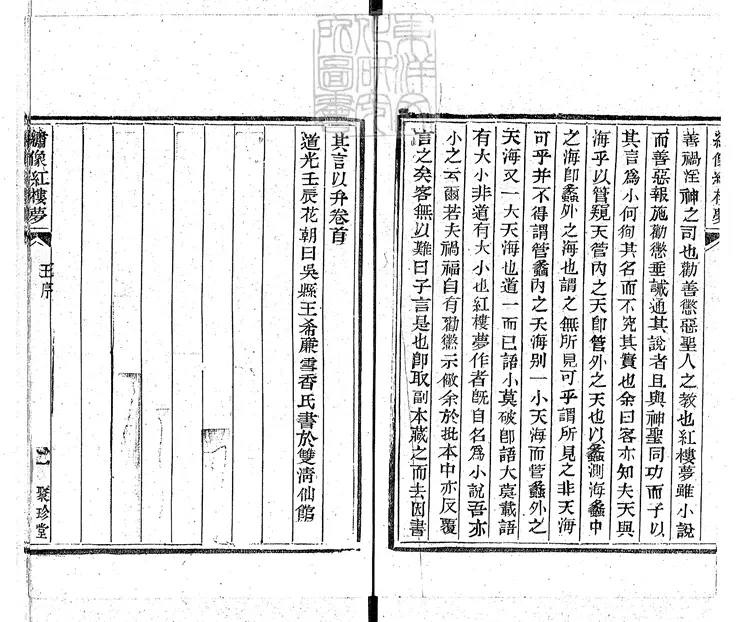 繡像紅樓夢
善禍淫神之司也勸善懲惡聖人之教也紅樓夢雖小說
而善惡報施勸懲垂誡通其說者且與神聖同功而子以
其言爲小何徇其名而不究其實也余曰客亦知夫天與
海乎以管窺天管內之天卽管外之天也以蠡測海蠡中
之海卽蠡外之海也謂之無所見可乎謂所見之非天海
可乎并不得謂管蠡內之天海别一小天海而管蠡外之
天海又一大天海也道一而已語小莫破卽語大莫載語
有大小非道有大小也紅樓夢作者旣自名爲小說吾亦
小之云爾若夫禍福自有勸懲示儆余於批本中亦反覆
言之矣客無以難曰子言是也卽取副本藏之而去因書
其言以弁卷首
道光壬辰花朝日吳縣王希廉雪香氏書於雙淸仙館
繡像紅樓夢
王序
二
聚珍堂
東洋文
化研究
所圖書